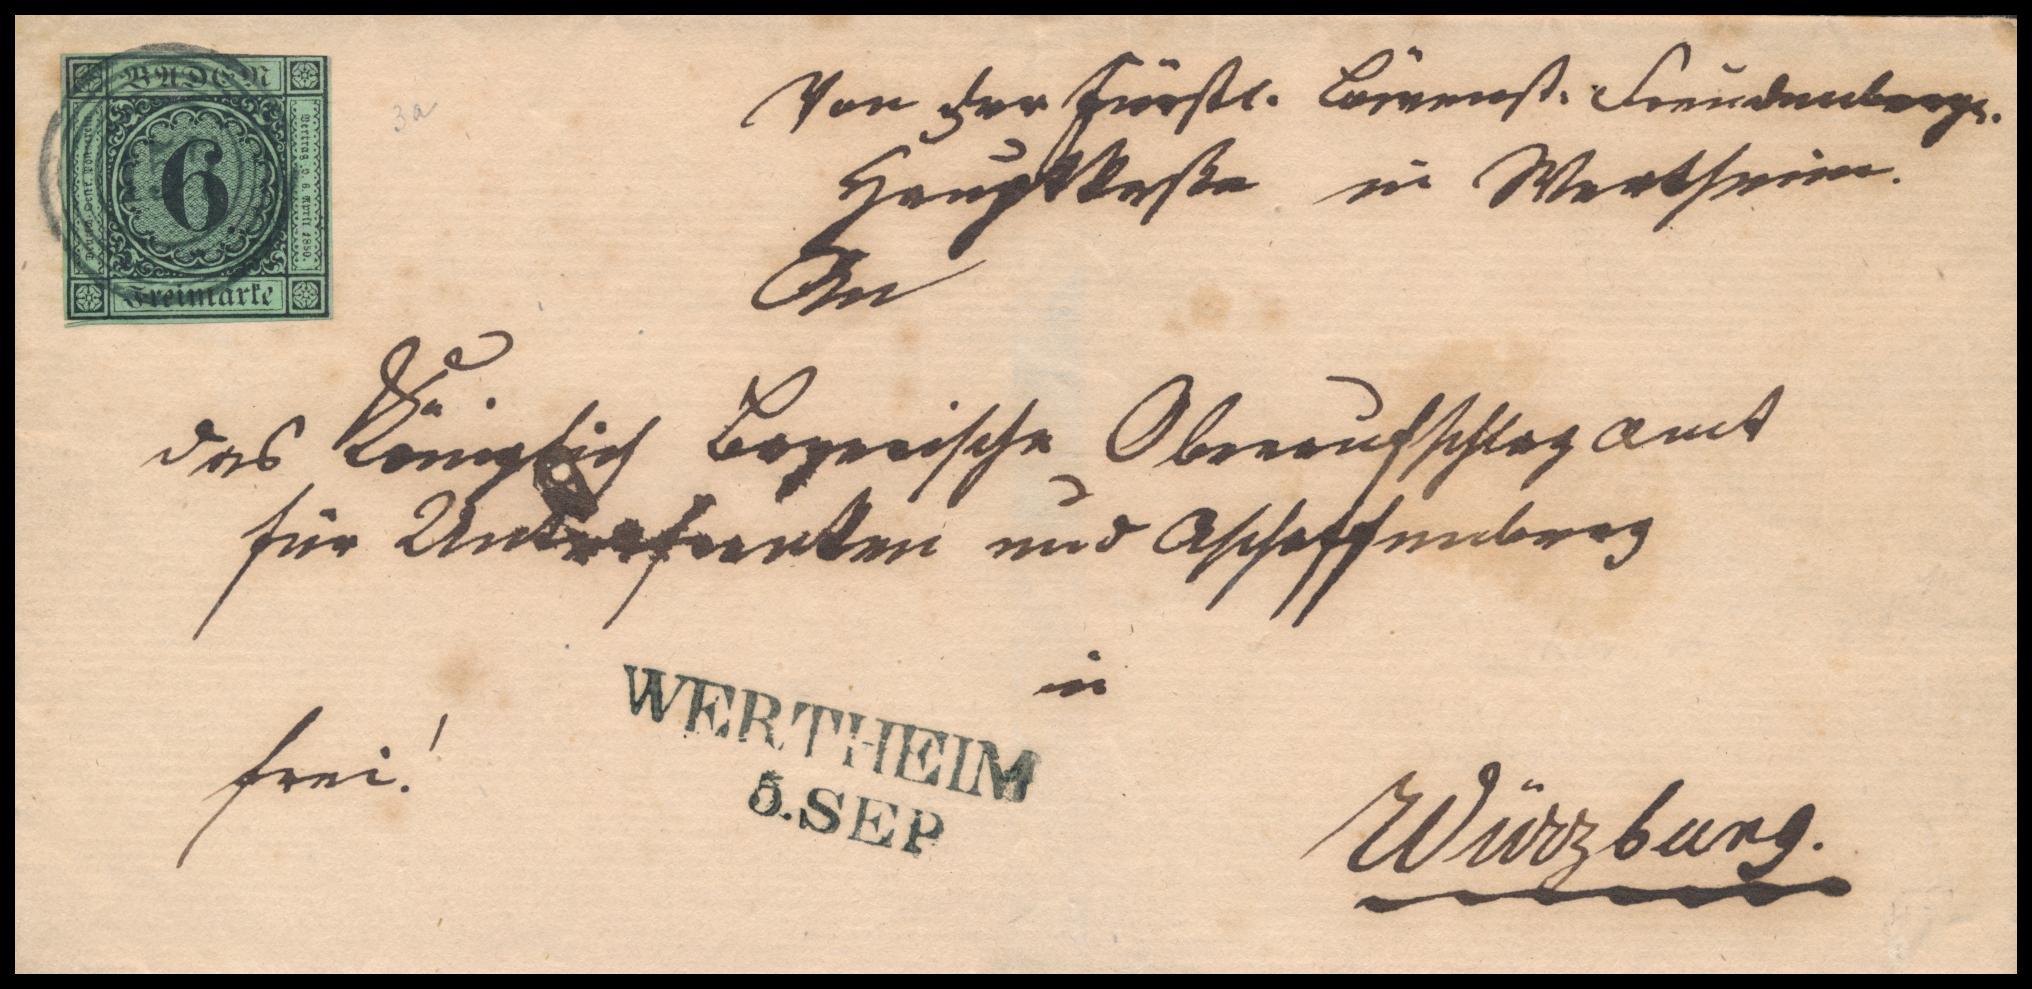 BADEN
Deutsch-Oestr. Postverein
6
Vertrag v. 6 April 1850.
Freimarke
3a
Von der Fürstl. Löwenst. Freudenberg.
Hauptkasse in Wertheim.
An
das Königlich Bayerische Oberaufschlagamt
für Unterfranken und Aschaffenburg
in
WERTHEIM
5. SEP
frei!
Würzburg.